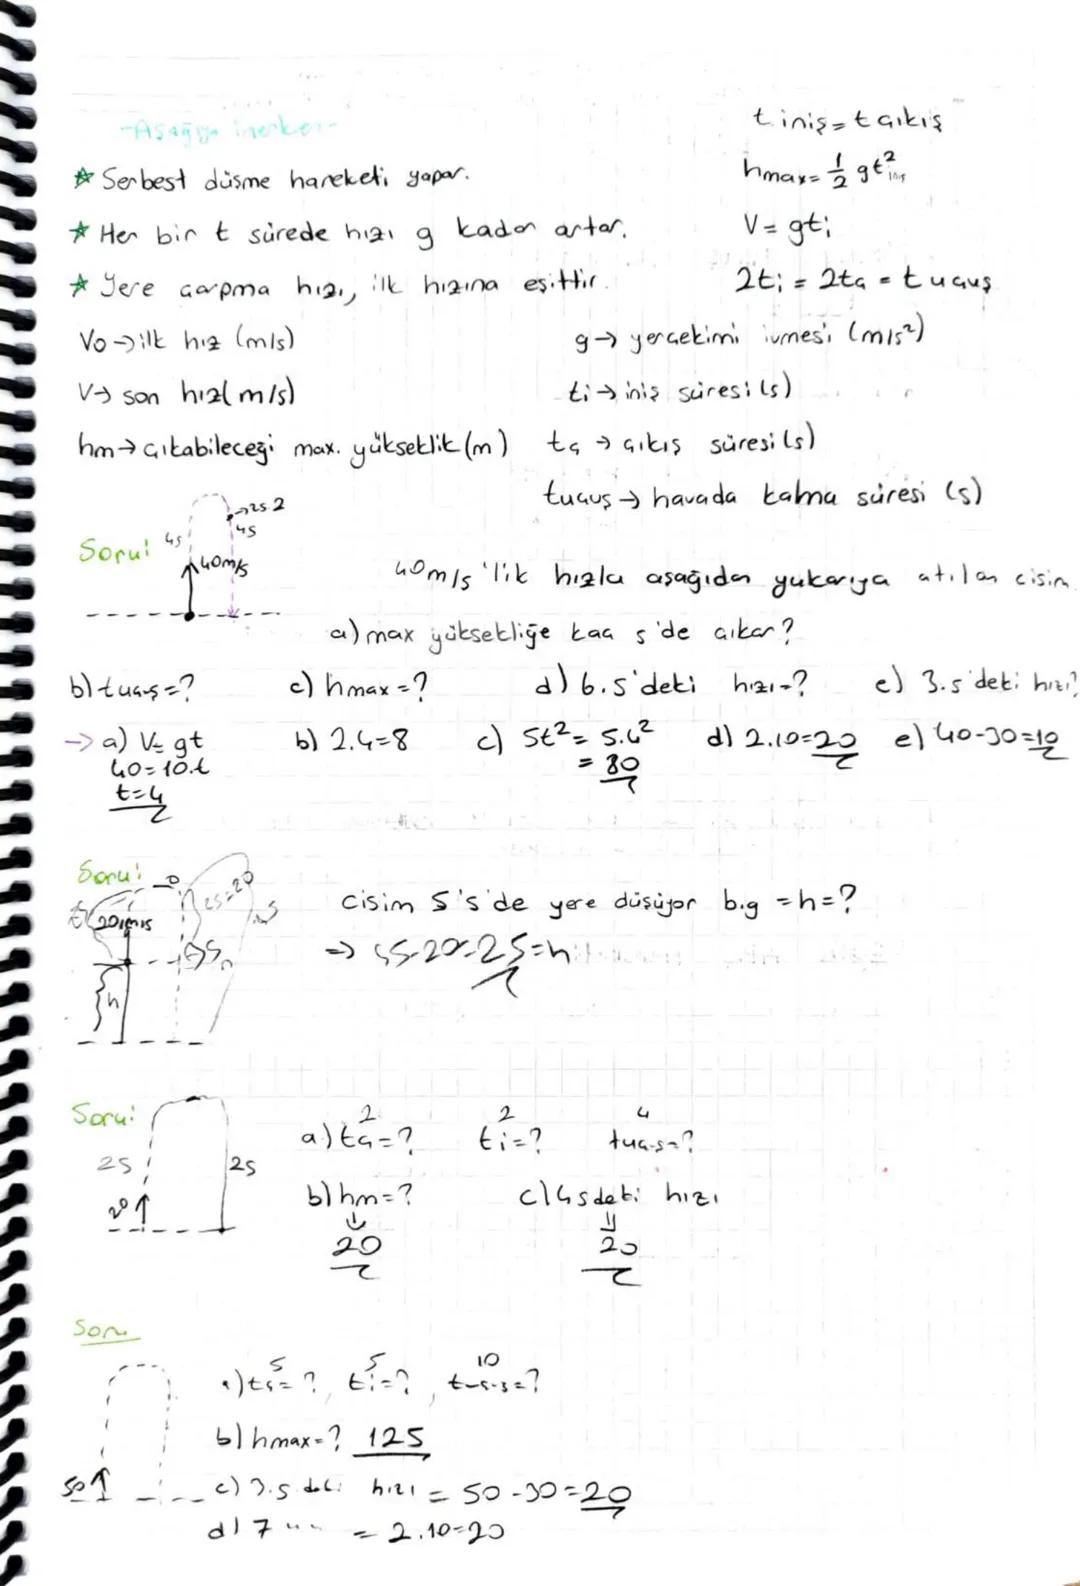 -Aşağıya inerken-
t iniş = t çıkış
☆ Serbest düşme hareketi yapar.
hmax = 1/2 gt²iniş
☆ Her bir t sürede hızı g kadar artar.
V = gti
☆ Yere çarpma hızı, ilk hızına eşittir.
2ti = 2tç = t uçuş
Vo → ilk hız (m/s)
g → yerçekimi ivmesi (m/s²)
V → son hız (m/s)
ti → iniş süresi (s)
hm → çıkabileceği max. yükseklik (m)
tç → çıkış süresi (s)
tuçuş → havada kalma süresi (s)
Soru:
4s
→2s 2
4s
40m/s
40m/s 'lik hızla aşağıdan yukarıya atılan cisim
a) max yüksekliğe kaç s'de çıkar?
b) tuçuş = ?
c) hmax = ?
d) 6.s'deki hızı = ?
e) 3.s'deki hızı?
→ a) V = gt
b) 2.4=8
c) 5t² = 5.4²
d) 2.10=20
e) 40-30=10
40=10.t
= 80
t=4
Soru:
20m/s
2s=20
h
cisim 5 s'de yere düşüyor b.g = h = ?
⇒ 45-20=25=h
Soru:
2s
2s
20
2
2
4
a) tç = ?
ti = ?
tuçuş = ?
b) hm = ?
c) 4sdeki hızı
20
20
Soru
50
5
5
10
a) tç = ?, ti = ?, tuçuş = ?
b) hmax = ? 125
c) 3.s deki hızı = 50-30=20
d) 7 " " = 2.10=20